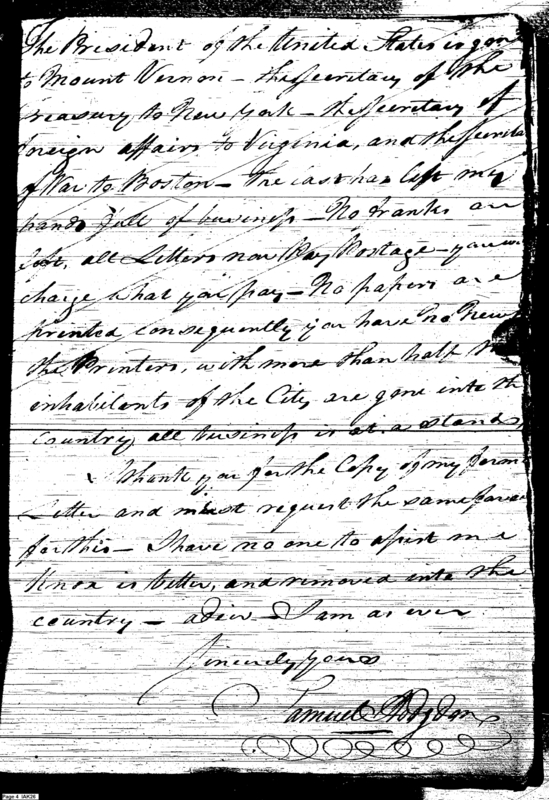 The President of the United States is gone
to Mount Vernon – the Secretary of the
Treasury to New York – the Secretary of
foreign affairs to Virginia, and the Secreta
of War to Boston – The last has left my
hands full of business – No franks are
left, all Letters now Pay Postage – you will
charge what you pay – No papers are
printed consequently you have no News
the Printers, with more than half the
inhabitants of the City are gone into the
Country, all business is at a stand,
I thank you for the Copy of my form
Letter and must request the same favor
for this – I have no one to assist me
Knox is better, and removed into the
country – adieu – I am as ever
Sincerely yours
Samuel Hodgdon
Page 4 IAK26